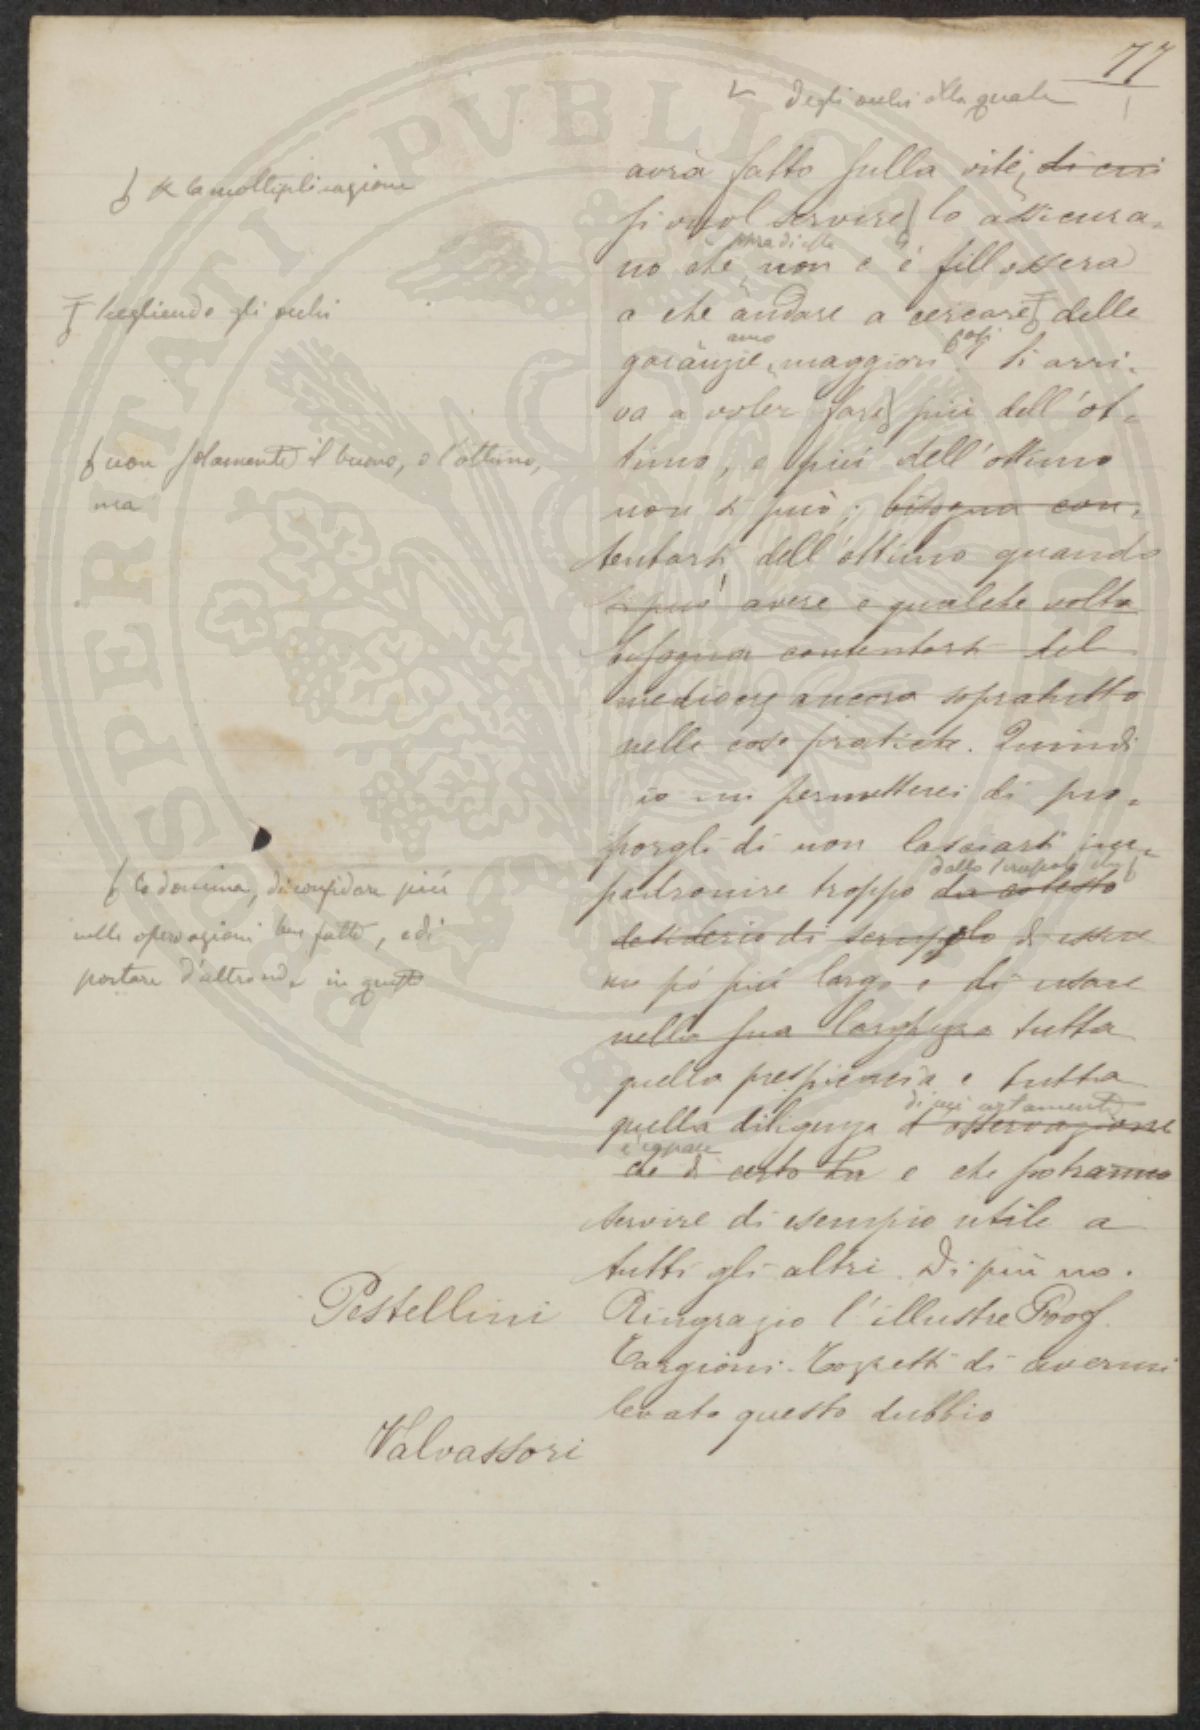 77
degli occhi alla quale
avrà fatto sulla vite, di cui
si vuol servire, lo assicura-
no che non c'è fillossera
o che andare a cercare delle
garanzie maggiori si arri-
va a voler fare più dell'ot-
timo, e più dell'ottimo
non si può; bisogna con-
tentarsi dell'ottimo quando
si può avere e qualche volta
bisogna contentarsi del
mediocre ancora sopratutto
nelle cose pratiche. Quindi
io mi permetterei di pro-
porgli di non lasciarsi im-
padronire troppo da cotesto
dallo scrupolo
desiderio di scrupolo di essere
un pò più largo e di usare
nella sua larghezza tutta
quella perspicacia e tutta
quella diligenza d'osservazione
di cui certamente
è capace
che di certo ha e che potranno
servire di esempio utile a
tutti gli altri. Di più no.
Pestellini Ringrazio l'illustre Prof.
Targioni-Tozzetti di avermi
levato questo dubbio
Valvassori
la moltiplicazione
scegliendo gli occhi
non solamente il buono, o l'ottimo,
ma
lo domina, di confidare più
nelle operazioni ben fatte, e di
portare d'altronde in queste